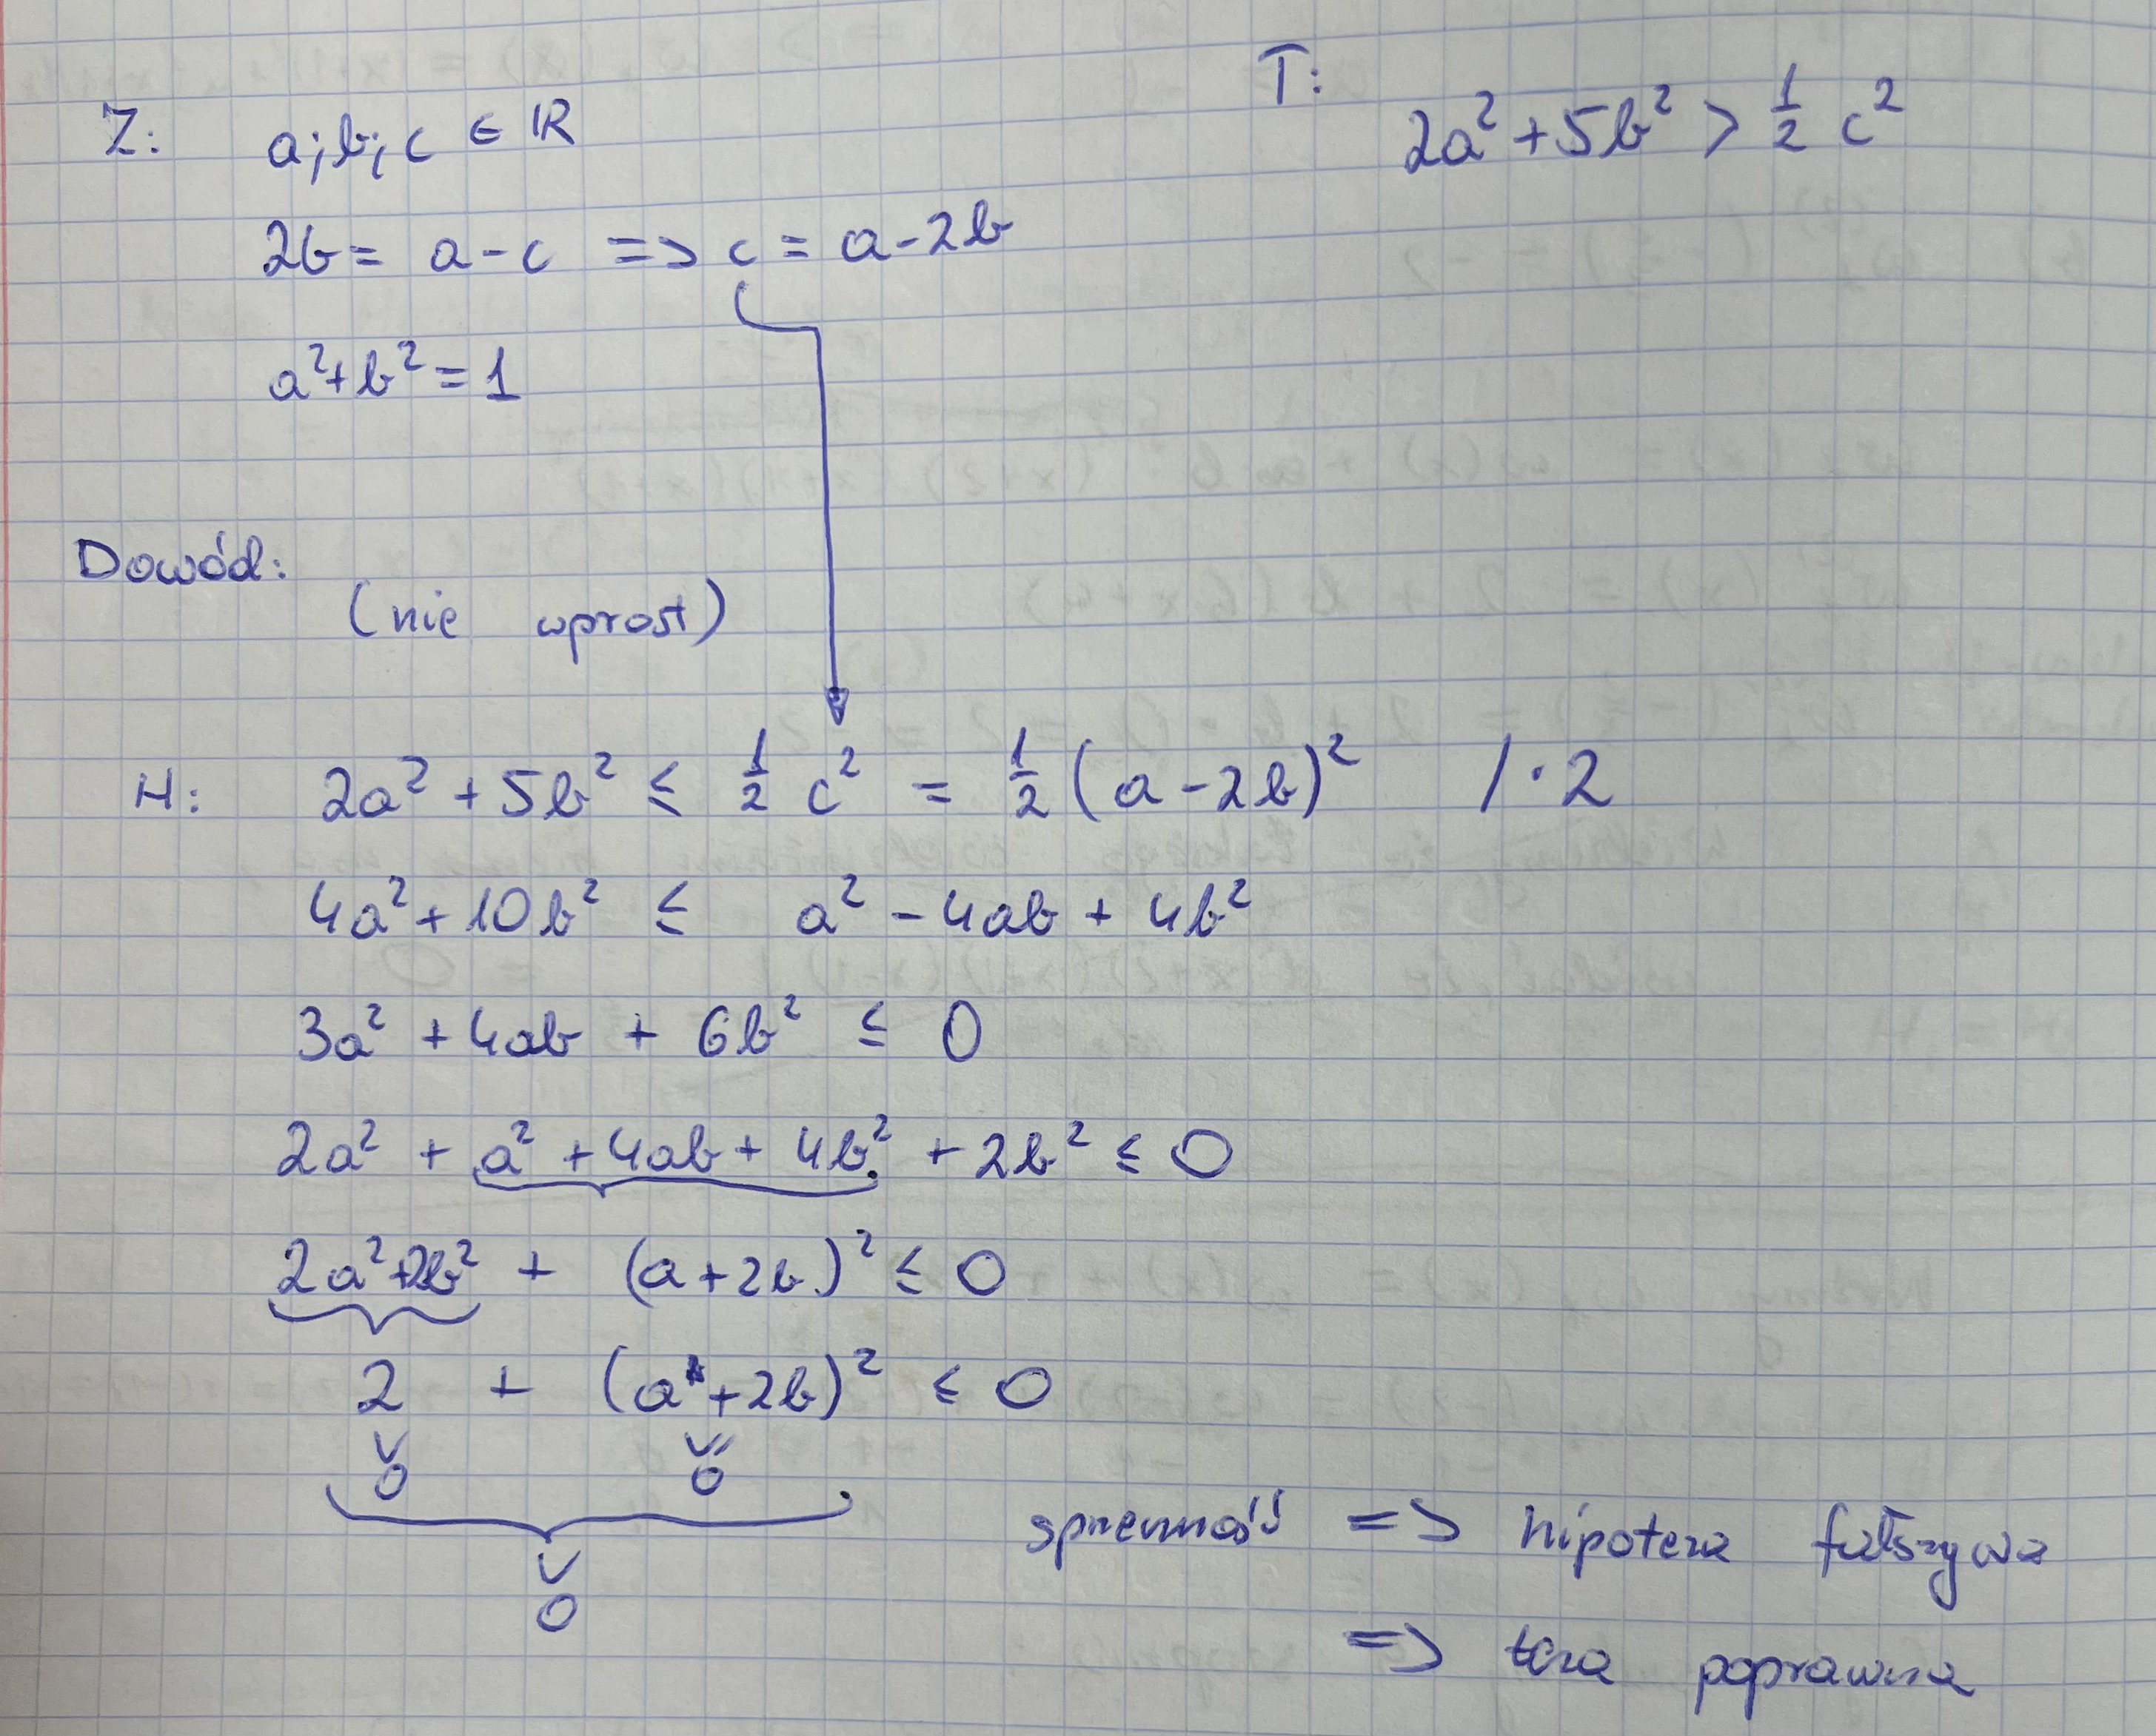 Z: a; b; c ∈ ℝ
T: 2a² + 5b² > ½ c²
2b = a - c => c = a - 2b
a² + b² = 1
Dowód:
(nie wprost)
H: 2a² + 5b² ≤ ½ c² = ½ (a - 2b)² / · 2
4a² + 10b² ≤ a² - 4ab + 4b²
3a² + 4ab + 6b² ≤ 0
2a² + a² + 4ab + 4b² + 2b² ≤ 0
2a² + 2b² + (a + 2b)² ≤ 0
2 + (a + 2b)² ≤ 0
∨ ∨
0 0
sprzeczność => hipoteza fałszywa
∨
0
=> teza poprawna